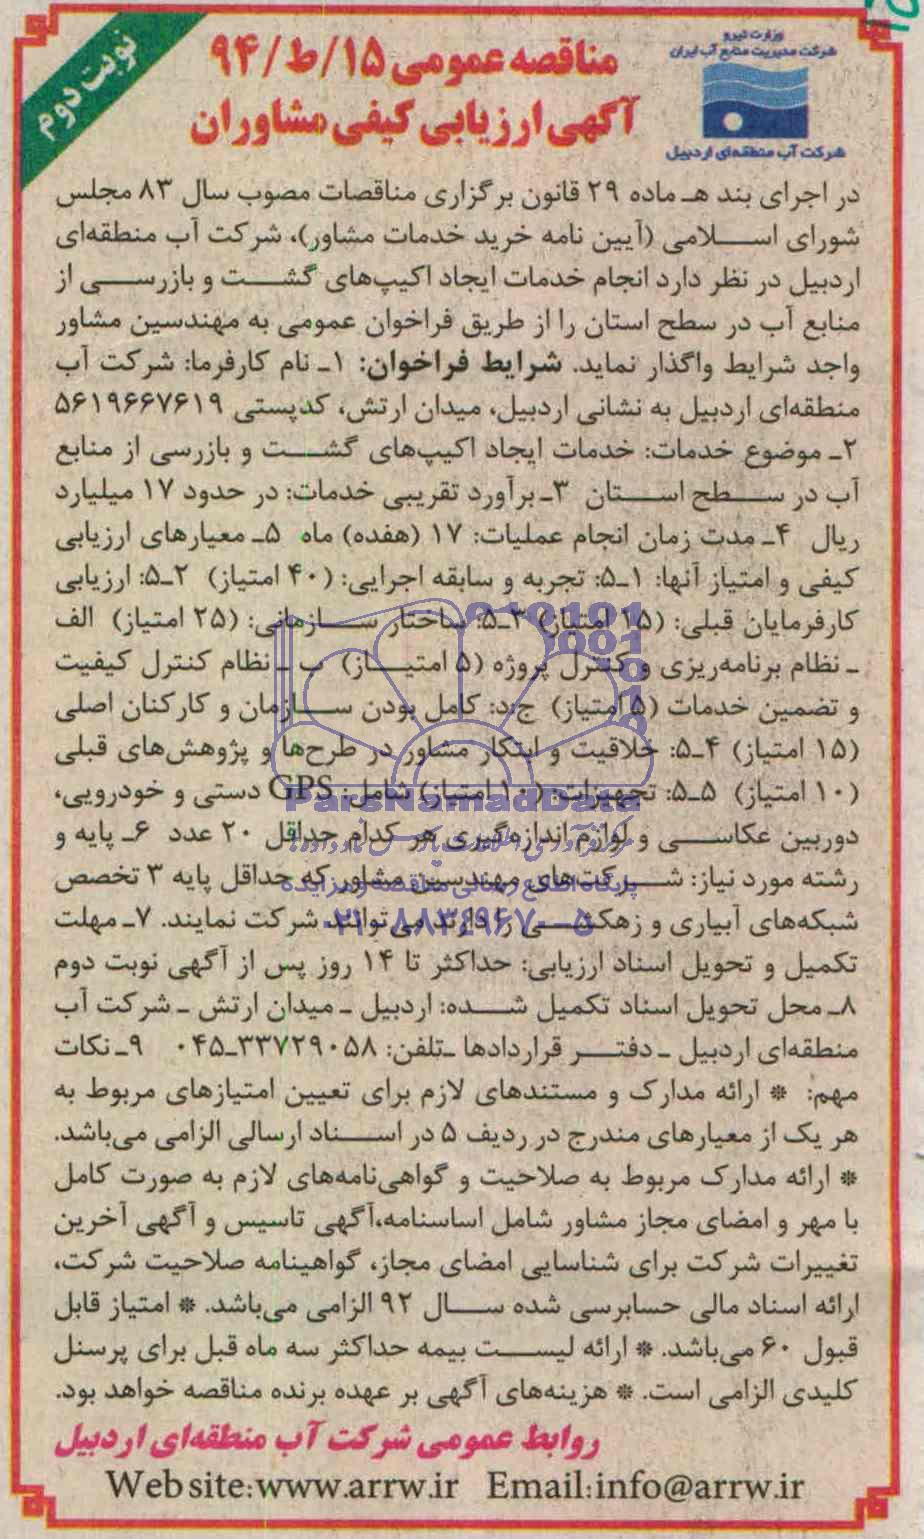 وزارت نیرو
شرکت مدیریت منابع آب ایران
شرکت آب منطقه‌ای اردبیل
نوبت دوم
مناقصه عمومی ۱۵/ط/۹۴
آگهی ارزیابی کیفی مشاوران
در اجرای بند هـ ماده ۲۹ قانون برگزاری مناقصات مصوب سال ۸۳ مجلس
شورای اسلامی (آیین نامه خرید خدمات مشاور)، شرکت آب منطقه‌ای
اردبیل در نظر دارد انجام خدمات ایجاد اکیپ‌های گشت و بازرسی از
منابع آب در سطح استان را از طریق فراخوان عمومی به مهندسین مشاور
واجد شرایط واگذار نماید. شرایط فراخوان: ۱ـ نام کارفرما: شرکت آب
منطقه‌ای اردبیل به نشانی اردبیل، میدان ارتش، کدپستی ۵۶۱۹۶۶۷۶۱۹
۲ـ موضوع خدمات: خدمات ایجاد اکیپ‌های گشت و بازرسی از منابع
آب در سطح استان ۳ـ برآورد تقریبی خدمات: در حدود ۱۷ میلیارد
ریال ۴ـ مدت زمان انجام عملیات: ۱۷ (هفده) ماه ۵ـ معیارهای ارزیابی
کیفی و امتیاز آنها: ۱ـ۵: تجربه و سابقه اجرایی: (۴۰ امتیاز) ۲ـ۵: ارزیابی
کارفرمایان قبلی: (۱۵ امتیاز) ۳ـ۵: ساختار سازمانی: (۲۵ امتیاز) الف
ـ نظام برنامه‌ریزی و کنترل پروژه (۵ امتیاز) ب ـ نظام کنترل کیفیت
و تضمین خدمات (۵ امتیاز) ج:د: کامل بودن سازمان و کارکنان اصلی
(۱۵ امتیاز) ۴ـ۵: خلاقیت و ابتکار مشاور در طرح‌ها و پژوهش‌های قبلی
(۱۰ امتیاز) ۵ـ۵: تجهیزات: (۱۰ امتیاز) شامل: GPS دستی و خودرویی،
دوربین عکاسی و لوازم اندازه‌گیری هر کدام حداقل ۲۰ عدد ۶ـ پایه و
رشته مورد نیاز: شرکت‌های مهندسین مشاور که حداقل پایه ۳ تخصص
شبکه‌های آبیاری و زهکشی را دارند می‌توانند شرکت نمایند. ۷ـ مهلت
تکمیل و تحویل اسناد ارزیابی: حداکثر تا ۱۴ روز پس از آگهی نوبت دوم
۸ـ محل تحویل اسناد تکمیل شده: اردبیل ـ میدان ارتش ـ شرکت آب
منطقه‌ای اردبیل ـ دفتر قراردادها ـتلفن: ۳۳۷۲۹۰۵۸ـ۰۴۵ ۹ـ نکات
مهم: * ارائه مدارک و مستندهای لازم برای تعیین امتیازهای مربوط به
هر یک از معیارهای مندرج در ردیف ۵ در اسناد ارسالی الزامی می‌باشد.
* ارائه مدارک مربوط به صلاحیت و گواهی‌نامه‌های لازم به صورت کامل
با مهر و امضای مجاز مشاور شامل اساسنامه،آگهی تاسیس و آگهی آخرین
تغییرات شرکت برای شناسایی امضای مجاز، گواهینامه صلاحیت شرکت،
ارائه اسناد مالی حسابرسی شده سال ۹۲ الزامی می‌باشد. * امتیاز قابل
قبول ۶۰ می‌باشد. * ارائه لیست بیمه حداکثر سه ماه قبل برای پرسنل
کلیدی الزامی است. * هزینه‌های آگهی بر عهده برنده مناقصه خواهد بود.
روابط عمومی شرکت آب منطقه‌ای اردبیل
Web site:www.arrw.ir Email:info@arrw.ir
ParsNamadData
پایگاه اطلاع رسانی مناقصه و مزایده
۰۲۱-۸۸۳۴۹۶۷۰-۵